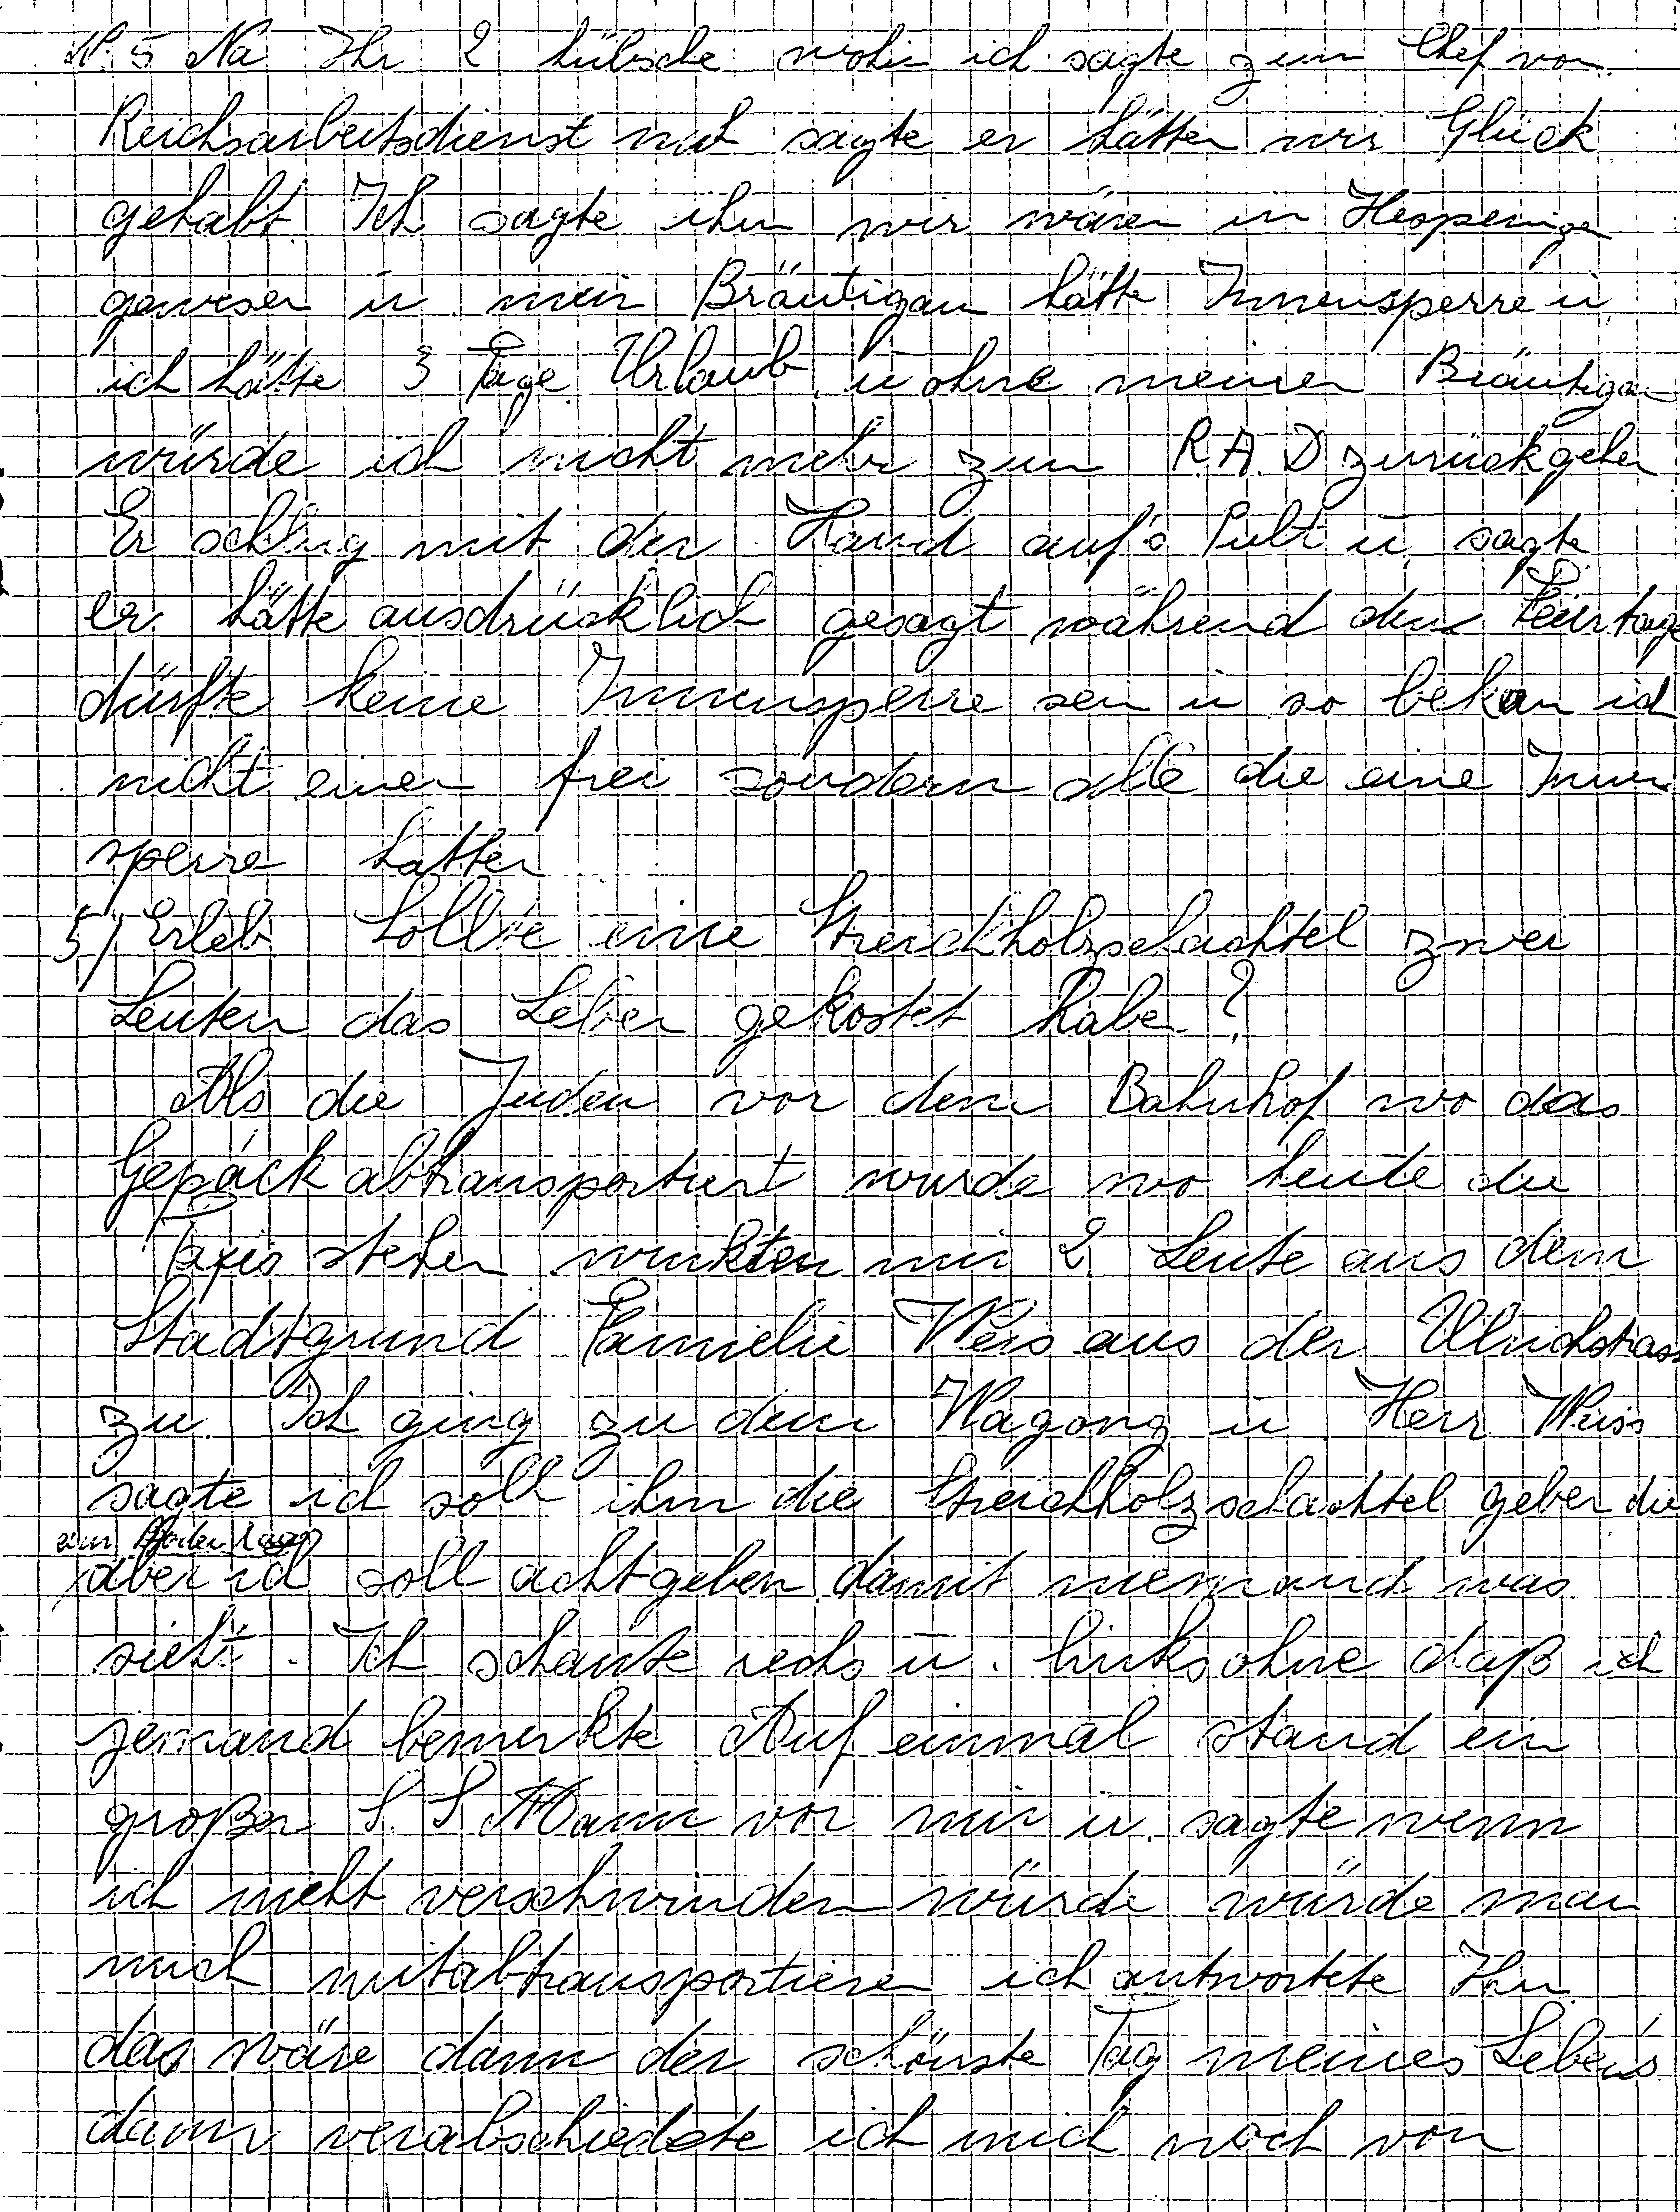 N. 5 Na Ihr 2 hübsche wohin ich sagte zum Chef vom
Reichsarbeitsdienst nut sagte er hätten wir Glück
gehabt. Ich sagte ihm wir wären in Hesperingen
gewesen u. mein Bräutigam hätte Innensperre u.
ich hätte 3 Tage Urlaub u ohne meinen Bräutigam
würde ich nicht mehr zum R.A.D zurückgehen
Er schlug mit der Hand auf's Pult u. sagte
er hätte ausdrücklich gesagt während den Feiertage
dürfte keine Innensperre sein u so bekam ich
nicht einen frei sondern alle die eine Innen
sperre hatten
5) Erleb Sollte eine Streichholzschachtel zwei
Leuten das Leben gekostet habe ?
Als die Juden vor dem Bahnhof wo das
Gepäck abtransportiert wurde wo heute die
Taxis stehen winkten mir 2 Leute aus dem
Stadtgrund Familie Weis aus der Ulrichstrass
zu. Ich ging zu dem Wagong u Herr Weiss
sagte ich soll ihm die Streichholzschachtel geben die
am Boden lag
aber ich soll achtgeben damit niemand was
sieht. Ich schaute rechs u. links ohne daß ich
jemand bemerkte Auf einmal stand ein
großer S.S Mann vor mir u. sagte wenn
ich nicht verschwinden würde würde man
mich mitabtransportieren ich antwortete Ihm
das wäre dann der schönste Tag meines Leben's
dann verabschiedete ich mich noch von